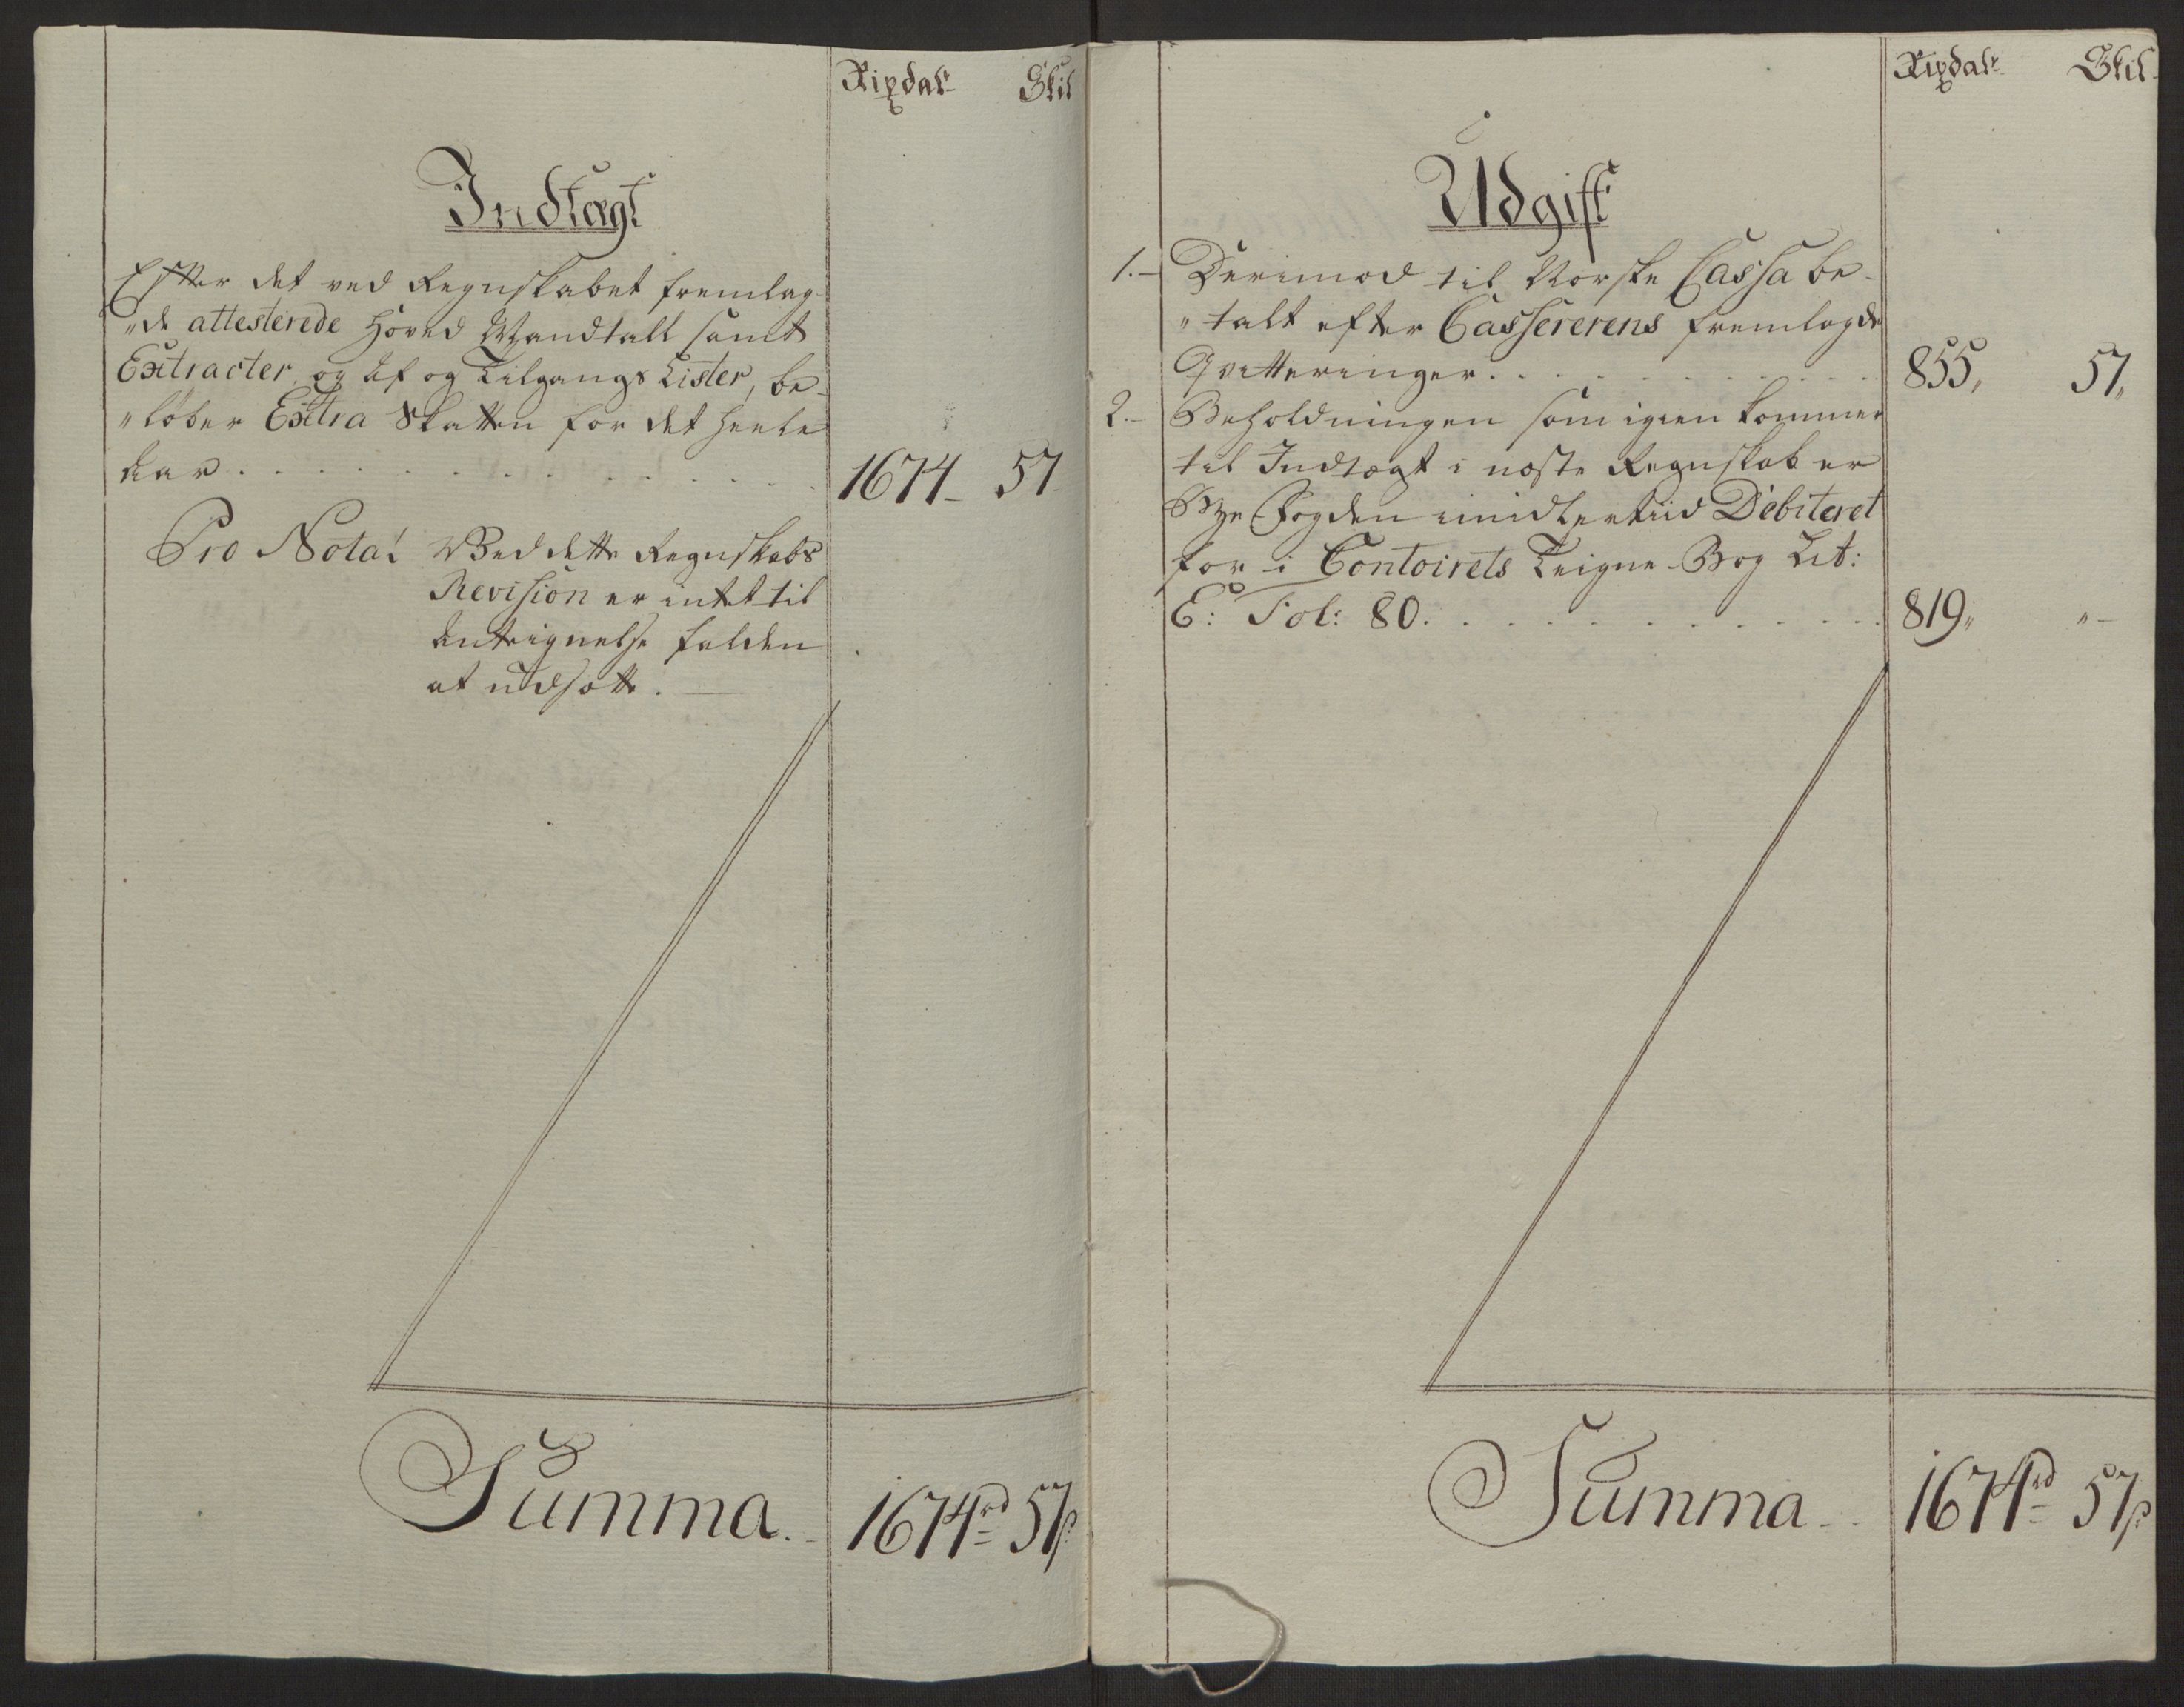 Rixdalr Skil
Indtægt
Efter det ved Regnskabet fremlag-
"de attesterede Hoved Mandtall samt
Extracter og Af og Tilgangs Lister, be-
"løber Extra Skatten for det heele
Aar . . . . . . . . . . . 1674 - 57
Pro Nota! Ved dette Regnskabs
Revision er intet til
Antægnelse falden
at udsætte. —
Summa. - 1674rd 57s
Rixdalr Skil
Udgift
1.- Derimod til Norske Cassa be-
"talt efter Cassererens fremlagde
Qvitteringer . . . . . . . . 855, 57,,
2.- Beholdningen som igien kommer
til Indtægt i næste Regnskab er
Bye Fogden imidlertiid Debiteret
for i Contoirets Teigne-Bog Lit:
E: Fol: 80. . . . . . . . . . 819,, " -
Summa - . 1674rd 57s